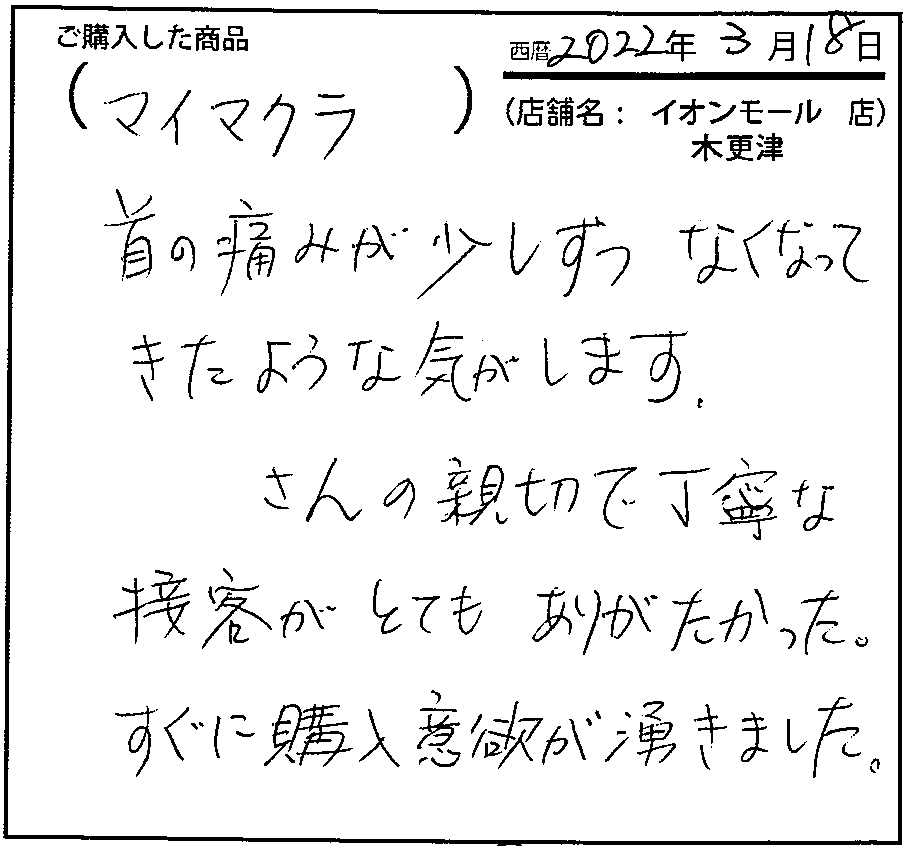 ご購入した商品
西暦2022年 3月18日
(マイマクラ)
(店舗名: イオンモール 店)
木更津
首の痛みが少しずつ なくなって
きたような気がします.
さんの親切で丁寧な
接客がとても ありがたかった。
すぐに購入意欲が湧きました。